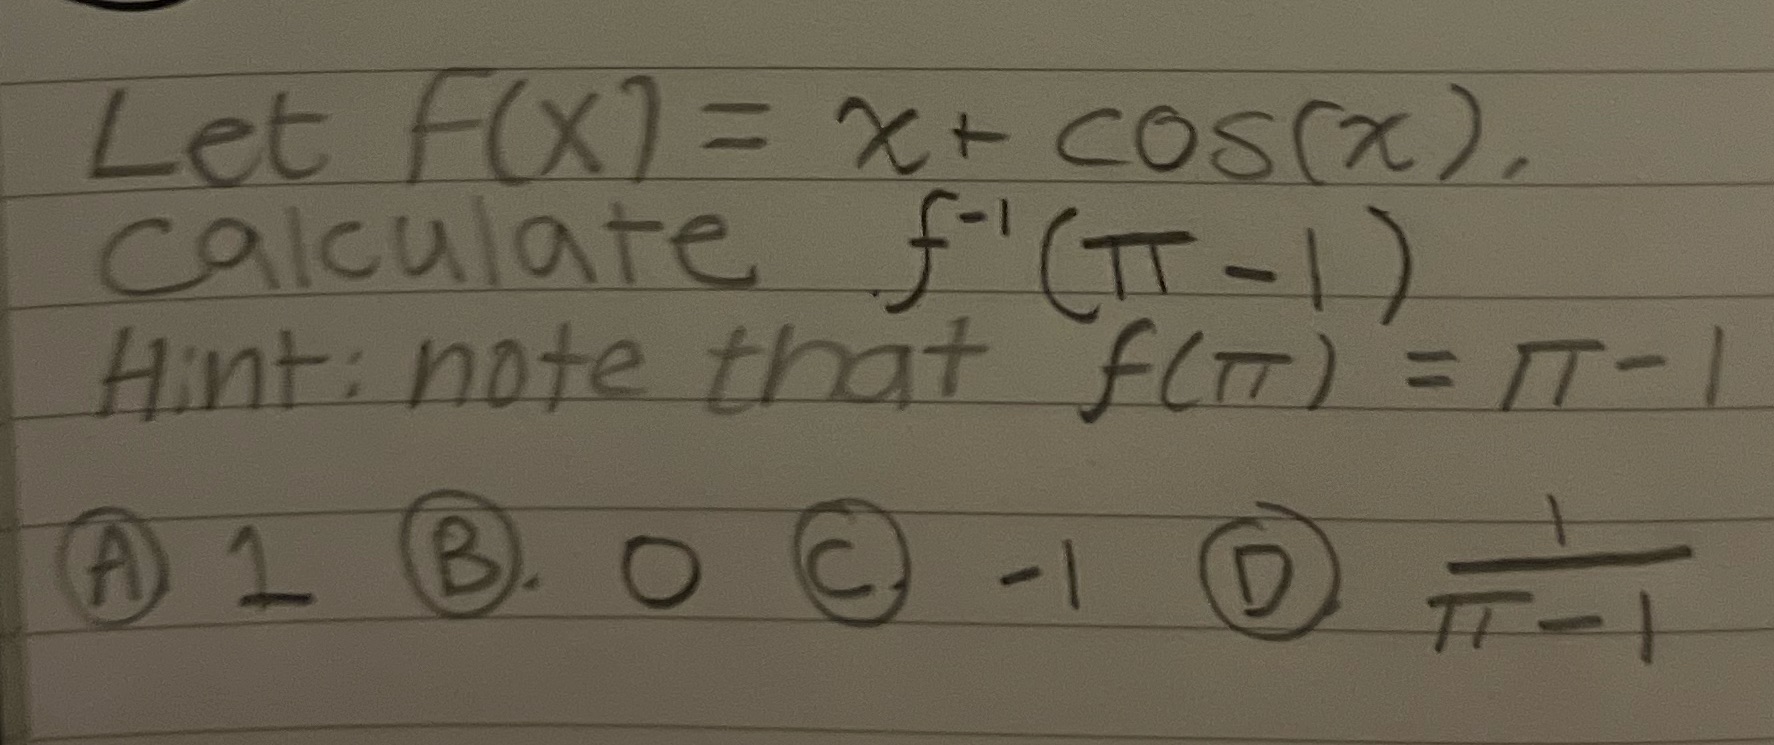 Let f(x) = x + cos(x).
calculate f⁻¹(π - 1)
Hint: note that f(π) = π - 1
Ⓐ 1 Ⓑ. 0 Ⓒ. -1 Ⓓ. 1/(π - 1)